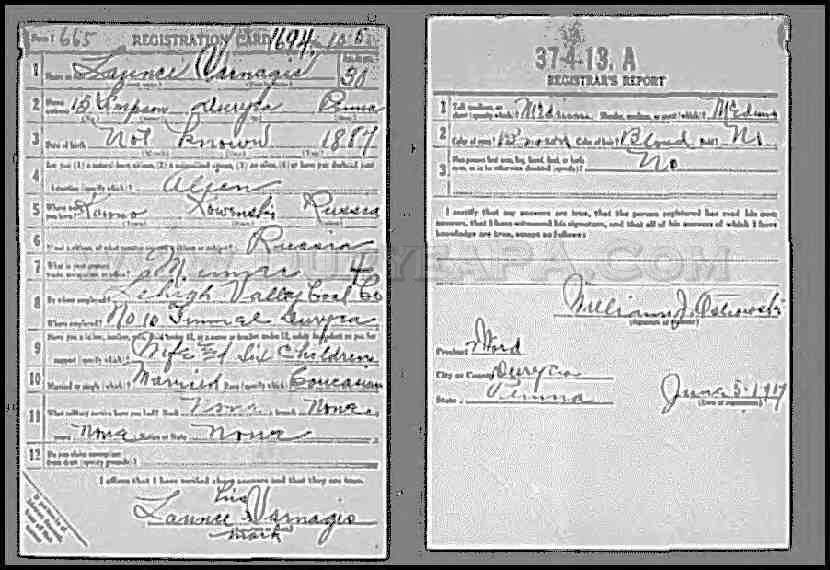 Form 1 665 REGISTRATION CARD 1694 No. 105
1 Name in full Launce Usnagis Age, in yrs. 30
2 Home address 15 Simpson Duryea Penna
3 Date of birth Not Known 1887
4 Are you (1) a natural born citizen, (2) a naturalized citizen, (3) an alien, (4) or have you declared your
intention (specify which)? Alien
5 Where were you born? Kovno Kowenski Russia
6 If not a citizen, of what country are you a citizen or subject? Russia
7 What is your present trade, occupation, or office? Miner 4
8 By whom employed? Lehigh Valley Coal Co
Where employed? No 10 Tunnel Duryea
9 Have you a father, mother, wife, child under 12, or a sister or brother under 12, solely dependent on you for
support (specify which)? Wife & Six Children
10 Married or single (which)? Married Race (specify which)? Caucasian
11 What military service have you had? Rank None branch None
years None Nation or State None
12 Do you claim exemption
from draft (specify grounds)?
I affirm that I have verified above answers and that they are true.
his
Launce Usnagis
mark
37-4-13. A
REGISTRAR'S REPORT
1 Tall, medium, or short (specify which)? Medium Slender, medium, or stout (which)? Medium
2 Color of eyes? Brown Color of hair? Blond Bald? No
3 Has person lost arm, leg, hand, foot, or both
eyes, or is he otherwise disabled (specify)? No
I certify that my answers are true, that the person registered has read his own
answers, that I have witnessed his signature, and that all of his answers of which I have
knowledge are true, except as follows:
WWW.DURYEAPA.COM
William J. Oskowski
(Signature of registrar)
Precinct Ward
City or County Duryea
State Penna
June 5-1917
(Date of registration)